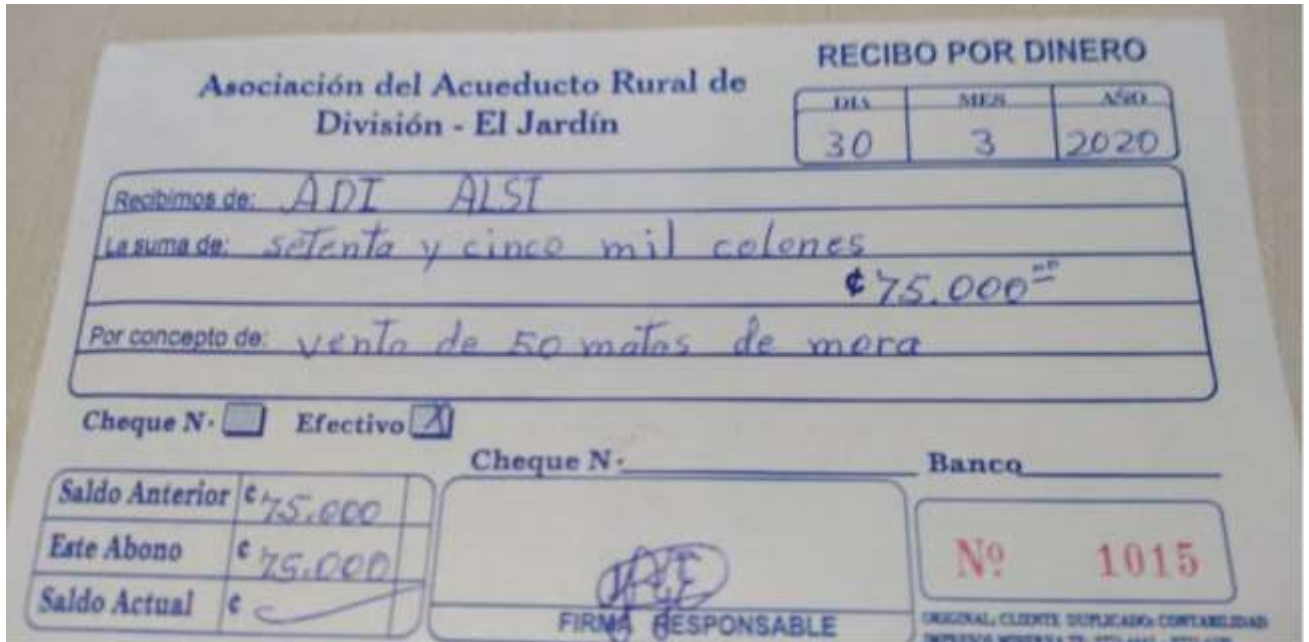 RECIBO POR DINERO
Asociación del Acueducto Rural de
División - El Jardín
DIA MES AÑO
30 3 2020
Recibimos de: ADI ALSI
La suma de: setenta y cinco mil colones
¢75.000
Por concepto de: venta de 50 matas de mora
Cheque N· Efectivo X
Cheque N· Banco
Saldo Anterior ¢ 75.000
Este Abono ¢ 75.000
Saldo Actual ¢
Nº 1015
FIRMA RESPONSABLE
ORIGINAL: CLIENTE DUPLICADO: CONTABILIDAD